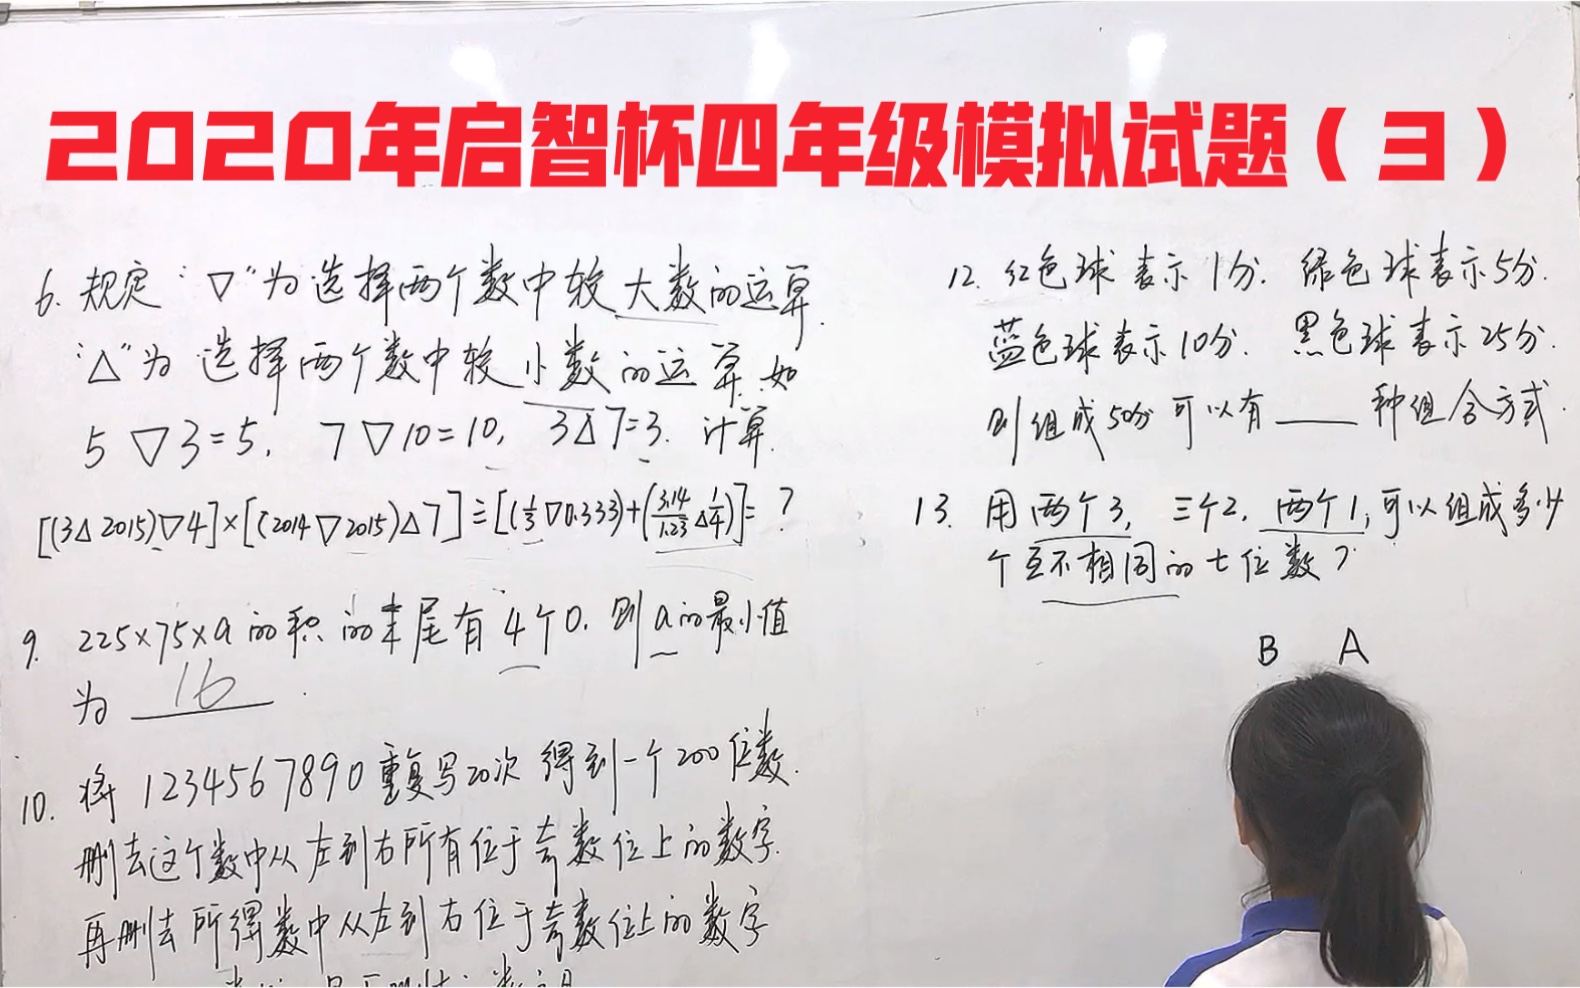 2020年启智杯四年级模拟试题(3)
6. 规定"▽"为选择两个数中较大数的运算.
"△"为选择两个数中较小数的运算.如
5▽3=5, 7▽10=10, 3△7=3. 计算.
[(3△2015)▽4]×[(2014▽2015)△7]÷[(1/3▽0.333)+(3.14/1.23△1/4)]=?
9. 225×75×a的积的末尾有4个0.则a的最小值
为 16 .
10. 将1234567890重复写20次得到一个200位数.
删去这个数中从左到右所有位于奇数位上的数字.
再删去所得数中从左到右位于奇数位上的数字
12. 红色球表示1分. 绿色球表示5分.
蓝色球表示10分. 黑色球表示25分.
则组成50分可以有____种组合方式.
13. 用两个3, 三个2, 两个1,可以组成多少
个互不相同的七位数?
B A